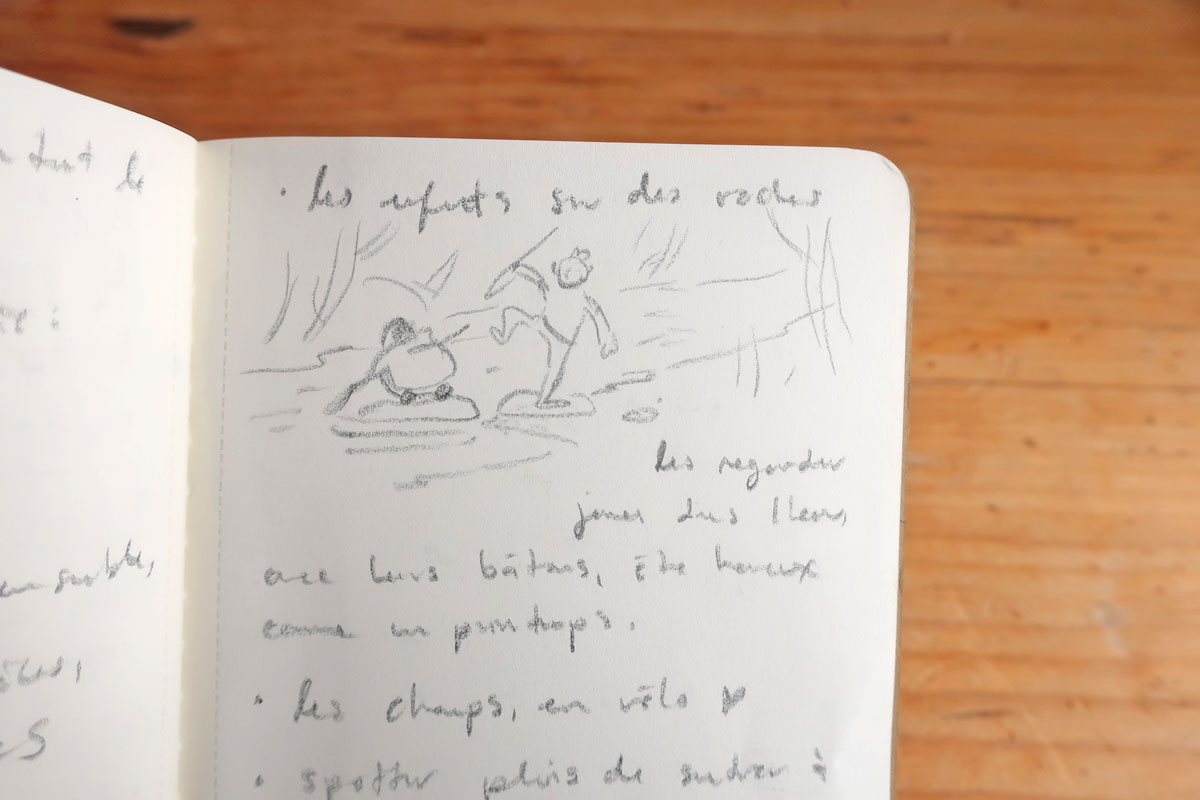 le
:
ensemble,
• les enfants sur des roches
les regarder
jouer dans l'eau,
avec leurs bâtons, être heureux
comme un printemps.
• les champs, en vélo ♥
• spotter pleins de sureau à